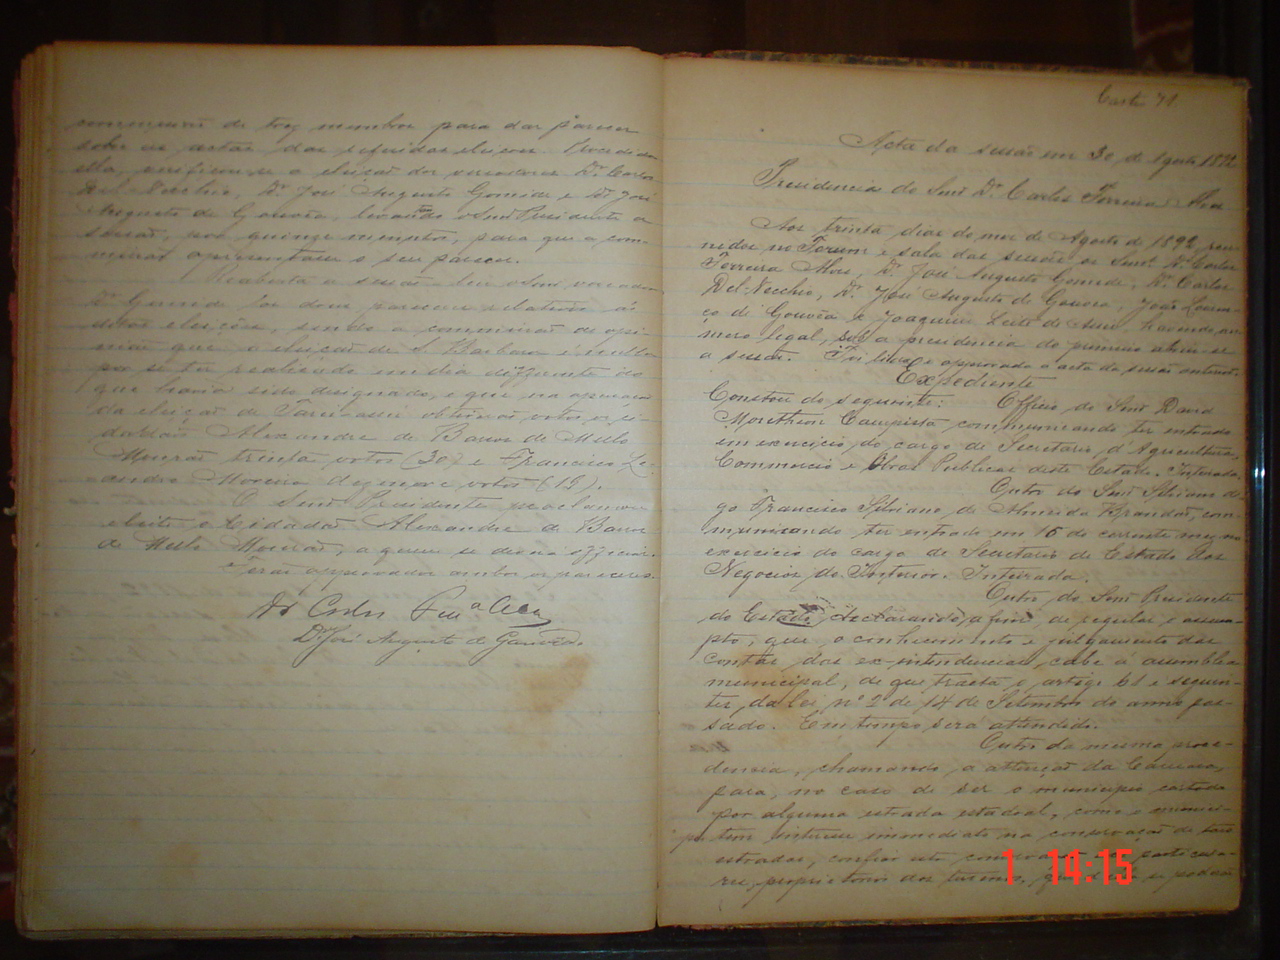 commissão de tres membros para dar parecer
sobre as actas das referidas eleições. Procedida
ella, verificou-se a eleição dos vereadores Dr. Carlos
Del-Vecchio, Dr. José Augusto Gomide e Dr. José
Augusto de Gouvêa, levantando o Snr. Presidente a
sessão, por quinze minutos, para que a com-
missão apresentasse o seu parecer.
Reaberta a sessão, leu o Snr. vereador
Dr. Gomide os dous pareceres relativos ás
ditas eleições, sendo a commissão de opi-
nião que a eleição de S. Barbara é nulla
por se ter realisado em dia differente do
que havia sido designado, e que na apuração
da eleição de obtiveram votos os ci-
dadãos Alexandre de Barros de Mello
Mourão trinta votos (30) e Francisco Le-
andro Moreira dezenove votos (19).
O Snr. Presidente proclamou
eleito o Cidadão Alexandre de Barros
de Mello Mourão, a quem se devia officiar.
Foram approvados ambos os pareceres.
Dr. Carlos Ferrª Alves
Dr. José Augusto de Gouvêa.
Acta da sessão em 30 de Agosto 1892
Presidencia do Snr. Dr. Carlos Ferreira Alves
Aos trinta dias do mez de Agosto de 1892 reu-
nidos no Forum e sala das sessões os Snrs. Dr. Carlos
Ferreira Alves, Dr. José Augusto Gomide, Dr. Carlos
Del-Vecchio, Dr. José Augusto de Gouvea, João Louren-
ço de Gouvêa e Joaquim Leite de havendo nu-
mero legal, sob a presidencia do primeiro abriu-se
a sessão. Foi lida e approvada a acta da sessão anterior.
Expediente
Constou do seguinte: Officio do Snr. David
Moretzson Campista communicando ter entrado
em exercicio do cargo de Secretario d'Agricultura,
Commercio e Obras Publicas deste Estado. Inteirada.
Outro do Snr.
Francisco Silviano de Almeida Brandão, com-
municando ter entrado em 16 do corrente mez no
exercicio do cargo de Secretario de Estado dos
Negocios do Interior. Inteirada.
Outro do Snr. Presidente
do Estado, declarando, a fim de regular o assum-
pto, que o conhecimento e julgamento das
contas das ex-intendencias, cabe á assemblea
municipal, de que tracta o artigo 61 e seguin-
tes, da lei nº 2 de 14 de Setembro do anno pas-
sado. Em tempo sera attendido.
Outro da mesma proce-
dencia, chamando a attenção da Camara,
para, no caso de ser o municipio cortado
por alguma estrada estadoal, como o
tem interesse immediato na conservação de taes
estradas, confiar aos
proprietarios dos terrenos,
1 14:15